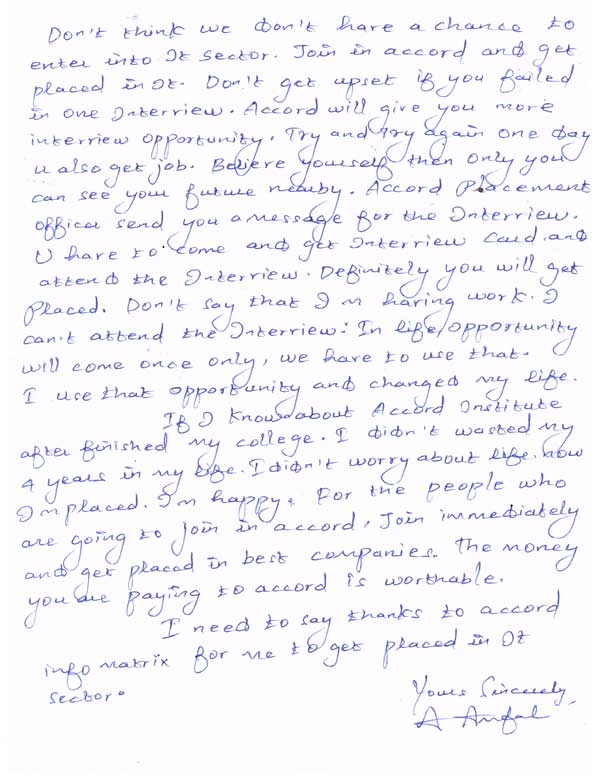 Don't think we don't have a chance to
enter into It sector. Join in accord and get
placed in It. Don't get upset if you failed
in one Interview. Accord will give you more
interview opportunity. Try and try again one day
u also get job. Believe yourself then only you
can see your future nearby. Accord Placement
officer send you a message for the Interview.
U have to come and get Interview Card and
attend the Interview. Definitely you will get
Placed. Don't say that I m having work. I
can't attend the Interview. In life, opportunity
will come once only, we have to use that.
I use that opportunity and changed my life.
If I know about Accord Institute
after finished my college. I didn't wasted my
4 years in my life. I didn't worry about life. now
I m placed. I'm happy. For the people who
are going to join in accord, Join immediately
and get placed in best companies. The money
you are paying to accord is worthable.
I need to say thanks to accord
info matrix for me to get placed in It
sector.
Yours Sincerely,
A